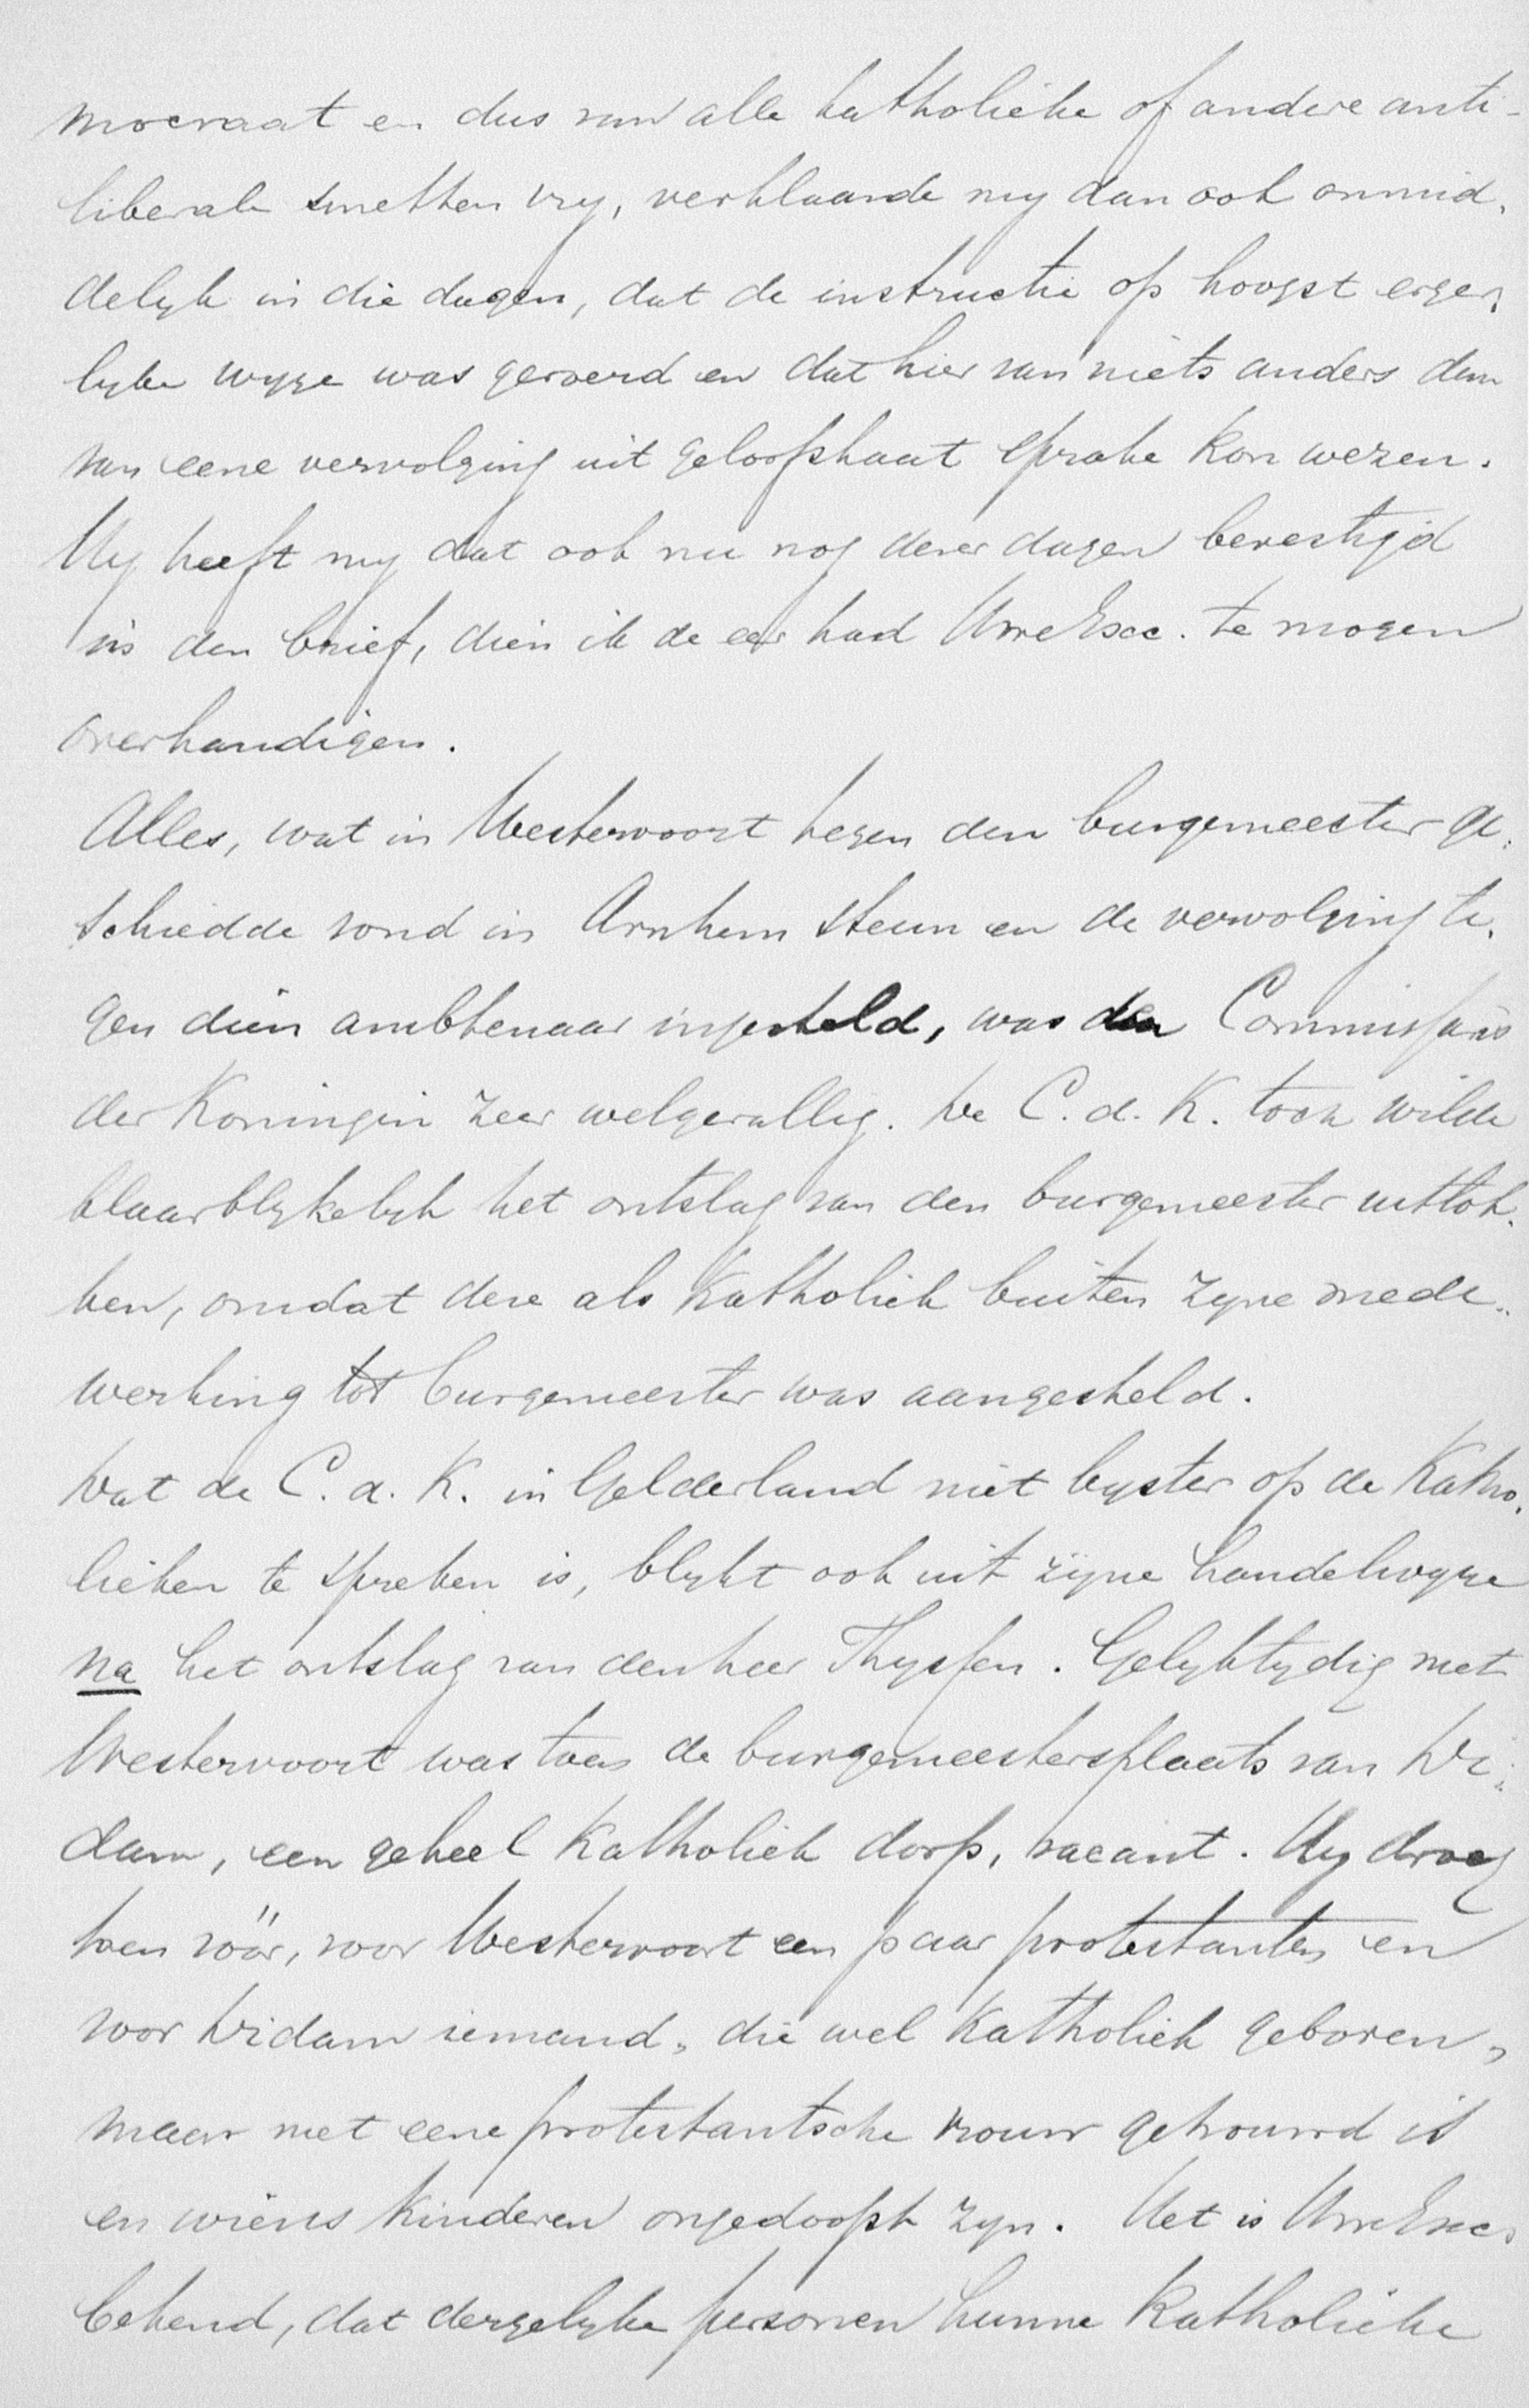 mocraat en dus van alle katholieke of andere anti-
liberale smetten vry, verklaarde my dan ook onmid-
delyk in die dagen, dat de instructie op hoogst erger-
lyke wyze was gevoerd en dat hier van niets anders dan
van eene vervolging uit geloofshaat sprake kon wezen.
Hy heeft my dat ook nu nog dezer dagen bevestigd
in den brief, dien ik de eer had Uwe Exc. te mogen
overhandigen.
Alles, wat in Westervoort tegen den burgemeester ge-
schiedde vond in Arnhem steun en de vervolging te-
gen dien ambtenaar ingesteld, was den Commissaris
der Koningin zeer welgevallig. De C. d. K. toch wilde
klaarblykelyk het ontslag van den burgemeester uitlok-
ken, omdat deze als Katholiek buiten zyne mede-
werking tot burgemeester was aangesteld.
Dat de C. d. K. in Gelderland niet byster op de Katho-
lieken te spreken is, blykt ook uit zijne handelwyze
na het ontslag van den heer Thyssen. Gelyktydig met
Westervoort was toen de burgemeestersplaats van Di-
dam, een geheel Katholiek dorp, vacant. Hy droeg
toen vóór, voor Westervoort een paar protestanten en
voor Didam iemand, die wel Katholiek geboren,
maar met eene protestantsche vrouw getrouwd is
en wiens kinderen ongedoopt zyn. Het is Uwe Exc.
bekend, dat dergelyke personen hunne Katholieke